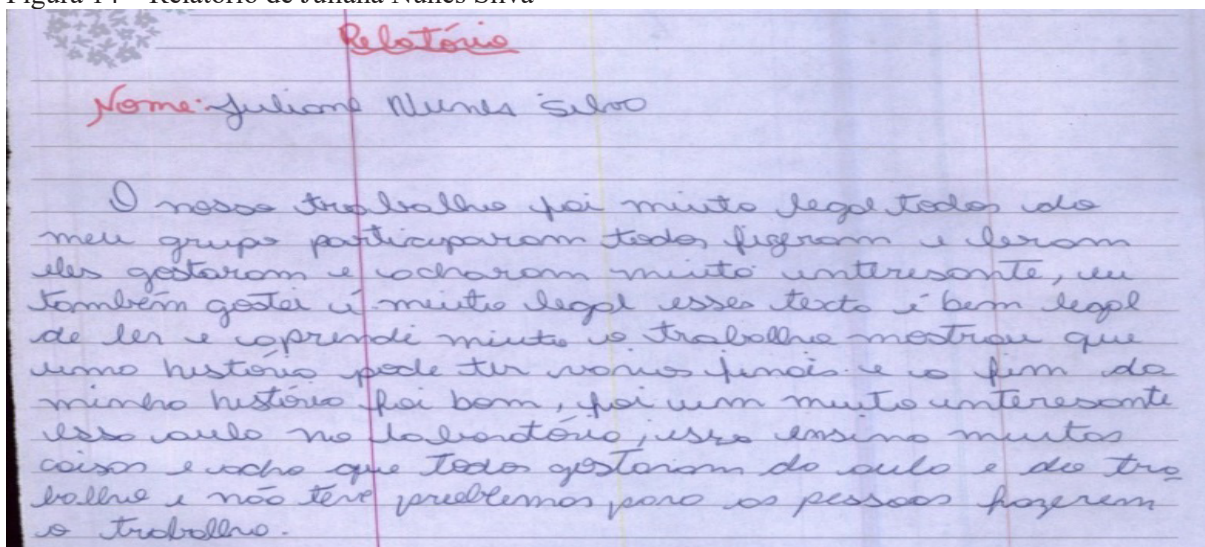 Figura 14 – Relatório de Juliana Nunes Silva
Relatório
Nome: Juliana Nunes Silva
O nosso trabalho foi muito legal todos do
meu grupo participaram todos fizeram e leram
eles gostaram e acharam muito interesante, eu
também gostei é muito legal esses texto é bem legal
de ler e aprendi muito o trabalho mostrou que
uma história pode ter varios finais e o fim da
minha história foi bom, foi um muito interesante
essa aula no laboratório, isso ensina muitas
coisas e acho que todos gostaram da aula e do tra
balho e não teve problemas para as pessoas fazerem
o trabalho.